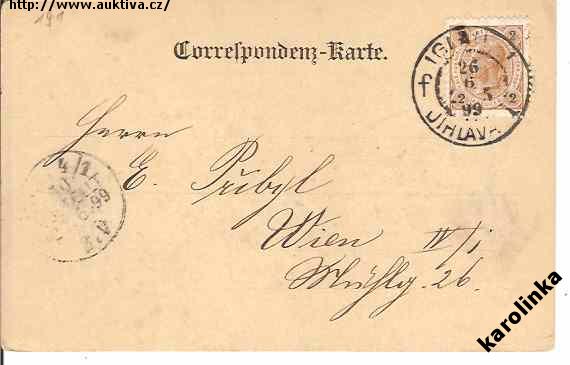 http://www.auktiva.cz/
191
Correspondenz-Karte.
IGLAU 1
26
6 5
99
JIHLAVA
2
2
Herrn
E. Přibyl
Wien IV/1
Mühlg. 26.
99
karolinka